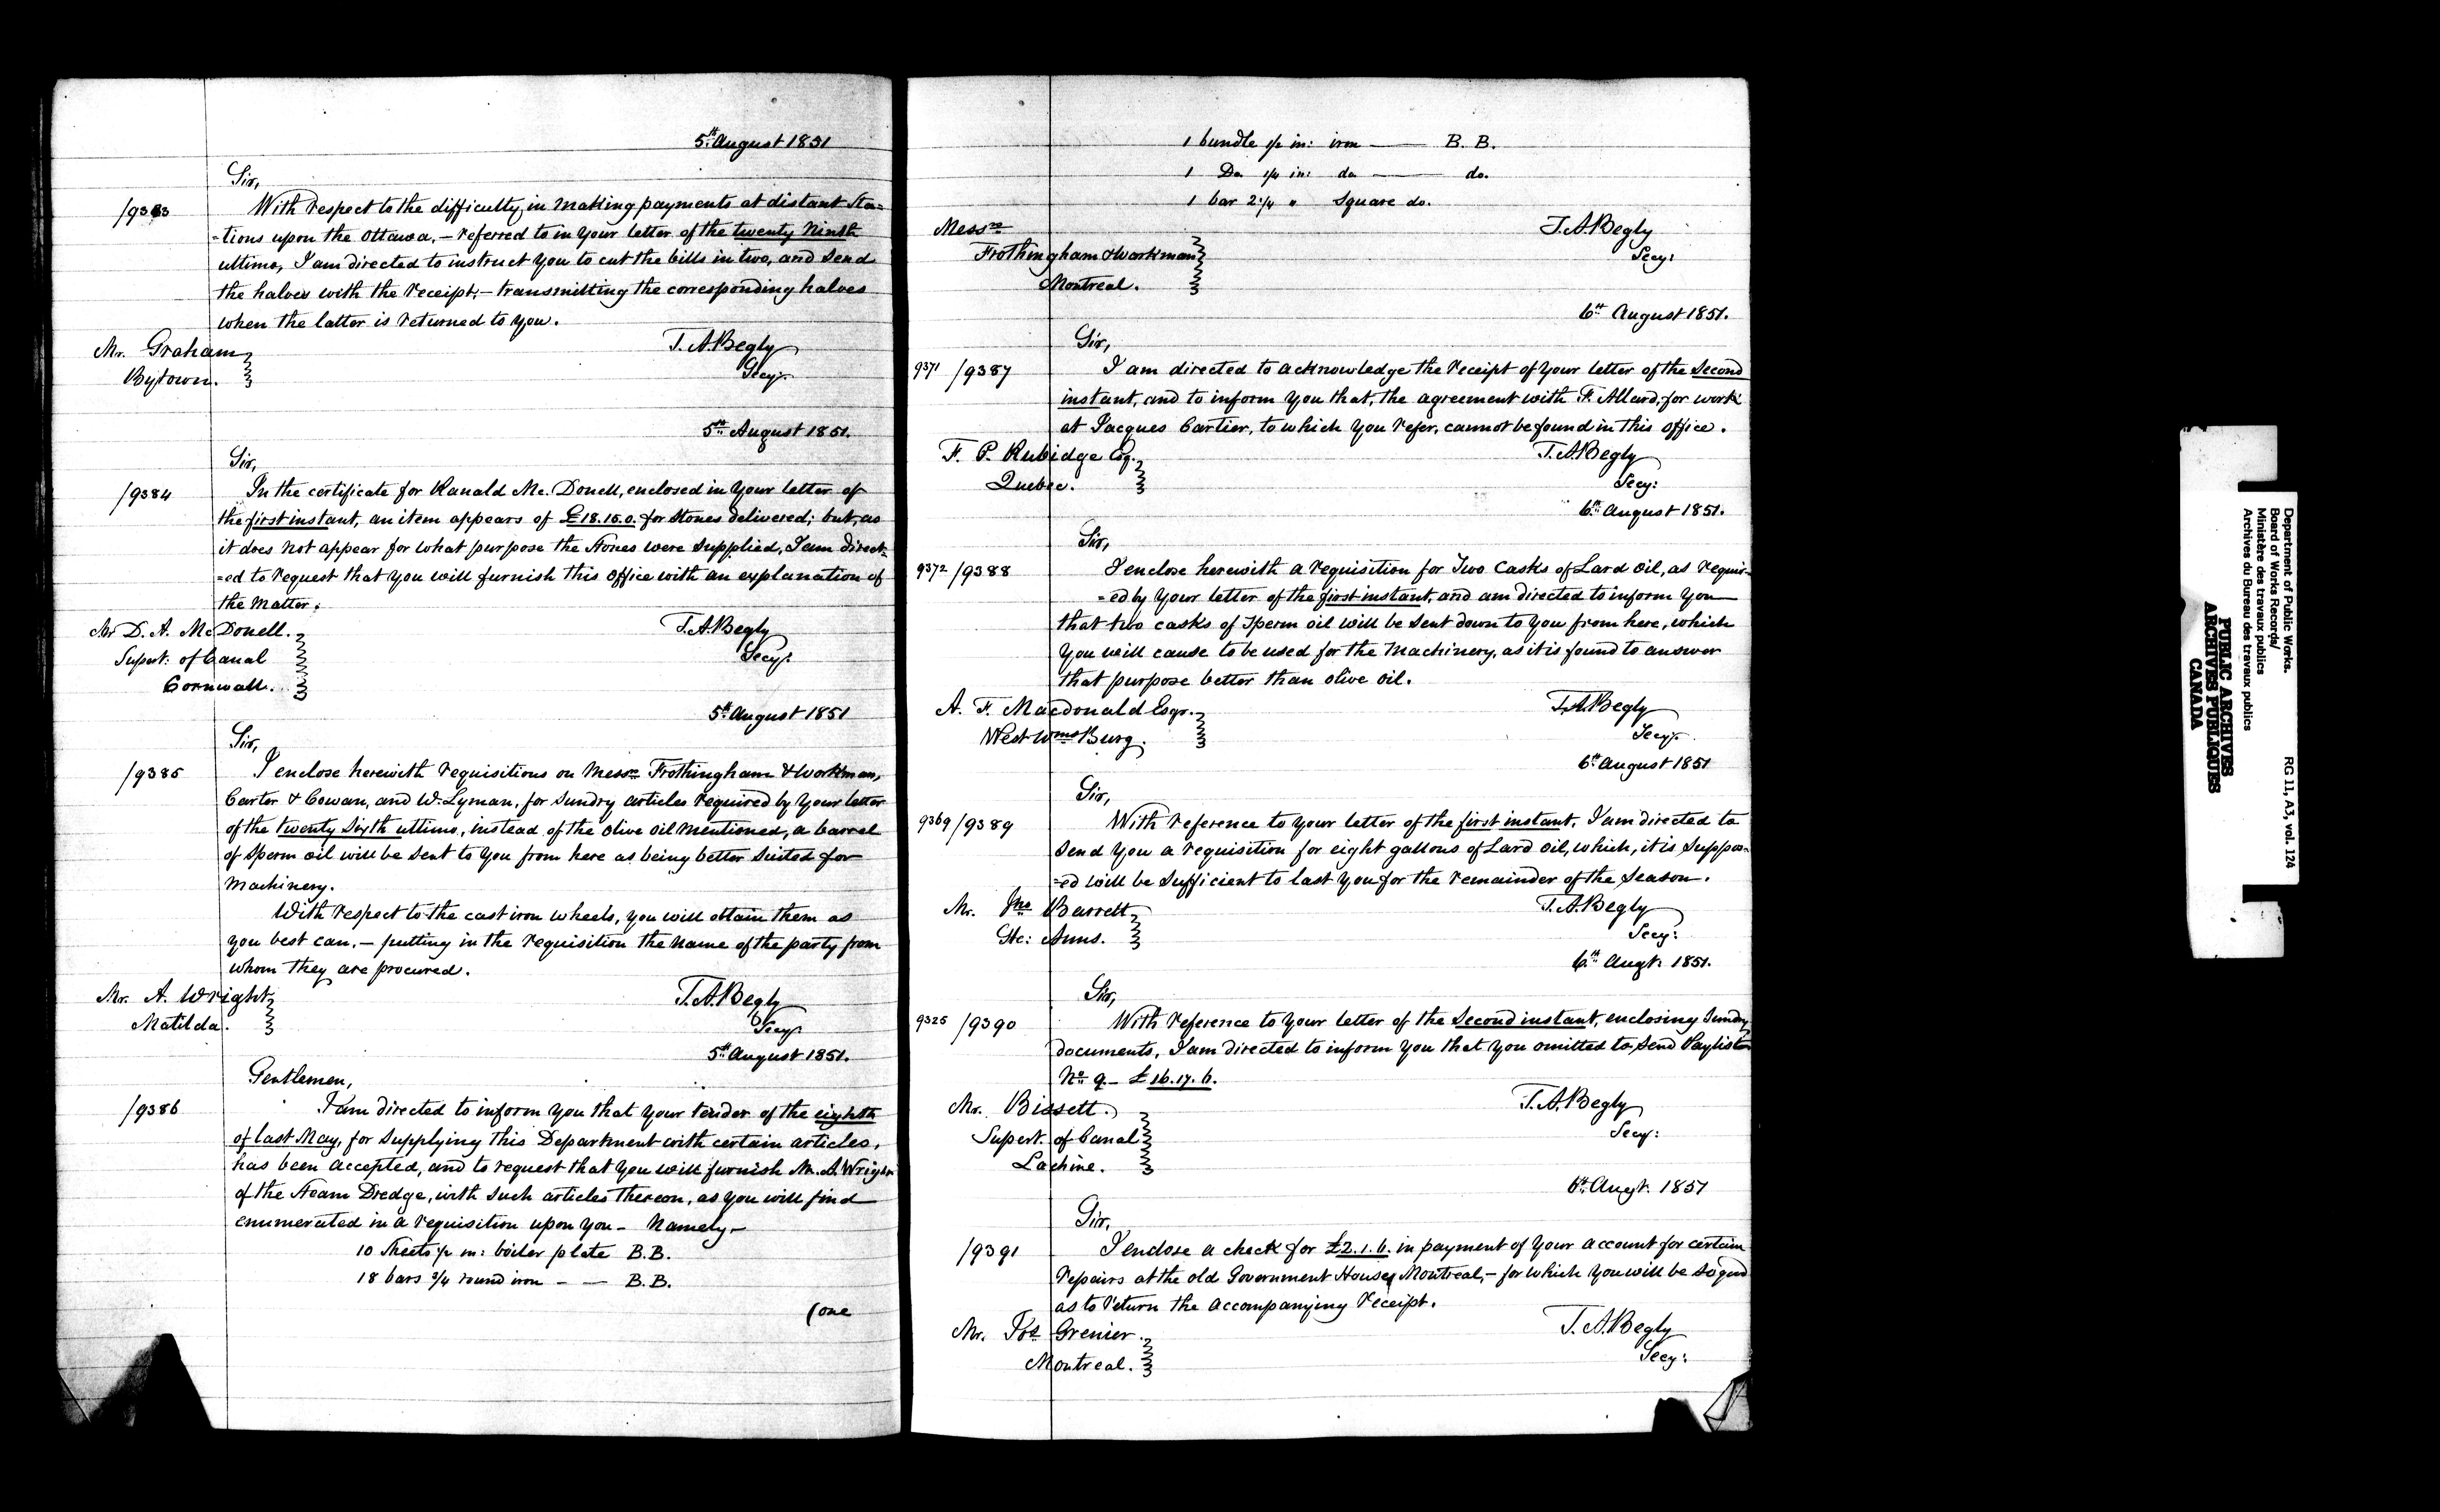 5th August 1851
Sir,
/9383 With respect to the difficulty in making payments at distant Sta=
=tions upon the Ottawa, - referred to in your letter of the twenty Ninth
ultimo, I am directed to instruct you to cut the bills in two, and send
the halves with the receipt, - transmitting the corresponding halves
when the latter is returned to you.
Mr. Graham
Bytown.
T. A. Begly
Secy:
5th August 1851.
Sir,
/9384 In the certificate for Ranald Mc. Donell, enclosed in your letter of
the first instant, an item appears of £18.15.0. for Stones delivered; but, as
it does not appear for what purpose the Stones were supplied, I am direct=
=ed to request that you will furnish this Office with an explanation of
the Matter.
Mr D. A. McDonell.
Supert: of Canal
Cornwall.
T. A. Begly
Secy:
5th August 1851
Sir,
/9385 I enclose herewith requisitions on Messrs Frothingham & Workman,
Carter & Cowan, and W. Lyman, for sundry articles required by your letter
of the twenty Sixth ultimo, instead of the olive oil mentioned, a barrel
of sperm oil will be sent to you from here as being better suited for
Machinery.
With respect to the cast iron wheels, you will obtain them as
you best can, - putting in the requisition the name of the party from
whom they are procured.
Mr. A. Wright
Matilda.
T. A. Begly
Secy:
5th August 1851.
Gentlemen,
/9386 I am directed to inform you that your tender of the eighth
of last May, for supplying this Department with certain articles,
has been accepted, and to request that you will furnish Mr. A Wright
of the Steam Dredge, with such articles thereon, as you will find
enumerated in a requisition upon you - Namely, -
10 Sheets 1/2 in: boiler plate B.B.
18 bars 3/4 round iron - — B.B.
(one
1 bundle 1/2 in: iron — B. B.
1 Do 1/4 in: do — do.
1 bar 2 1/4 " Square do.
Messrs
Frothingham & Workman
Montreal.
T. A. Begly
Secy:
6th August 1851.
Sir,
9371 /9387 I am directed to acknowledge the receipt of your letter of the Second
instant, and to inform you that, the agreement with F. Allard, for work
at Jacques Cartier, to which you refer, cannot be found in this office.
F. P. Rubidge Esq.
Quebec.
T. A. Begly
Secy:
6th August 1851.
Sir,
9372 /9388 I enclose herewith a requisition for Two Casks of Lard Oil, as requir=
=ed by your letter of the first instant, and am directed to inform you
that two casks of Sperm oil will be sent down to you from here, which
you will cause to be used for the Machinery, as it is found to answer
that purpose better than olive oil.
A. F. Macdonald Esqr.
West WmsBurg.
T. A. Begly
Secy:
6th August 1851
Sir,
9369 /9389 With reference to your letter of the first instant, I am directed to
send you a requisition for eight gallons of Lard Oil, which, it is Suppos=
=ed will be sufficient to last you for the remainder of the Season.
Mr. Jno Barrett
Ste: Anns.
T. A. Begly
Secy:
6th Augt: 1851.
Sir,
9325 /9390 With reference to your letter of the Second instant, enclosing Sundry
documents, I am directed to inform you that you omitted to send Paylist
No 9 - £16.17.6.
Mr. Bissett.
Supert. of Canal
Lachine.
T. A. Begly
Secy:
6th Augt. 1851
Sir,
/9391 I enclose a check for £2.1.6. in payment of your account for certain
repairs at the old Government House, Montreal, - for which you will be so good
as to return the accompanying receipt.
Mr. Jos Grenier.
Montreal.
T. A. Begly
Secy:
Department of Public Works.
Board of Works Records/
Ministère des travaux publics
Archives du Bureau des travaux publics
RG 11, A3, vol. 124
PUBLIC ARCHIVES
ARCHIVES PUBLIQUES
CANADA